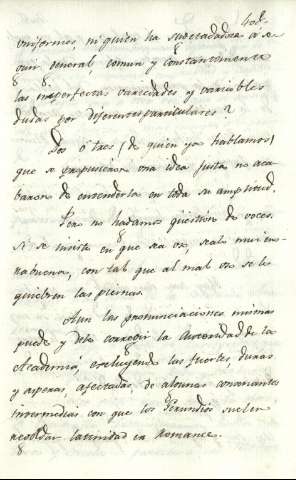 uniformes, ni quién ha subordinado á se-
guir general, comun y constantemente
las imperfectas variedades y variables
dudas por discursos particulares?
Dos ó tres (de quien ya hablamos)
que se propusieron una idea justa no aca-
baron de entenderla en toda su amplitud.
Pero no hagamos qüestion de voces.
Si se insiste en que sea vs, sealo mui en-
rabuena, con tal que al mal vs se le
quiebren las piernas.
Aun las pronunciaciones mismas
puede y debe corregir la Autoridad de la
Academia, excluyendo las fuertes, duras
y asperas, afectadas, de algunas consonantes
intermedias con que los Gerundios suelen
recordar latinidad en Romance.